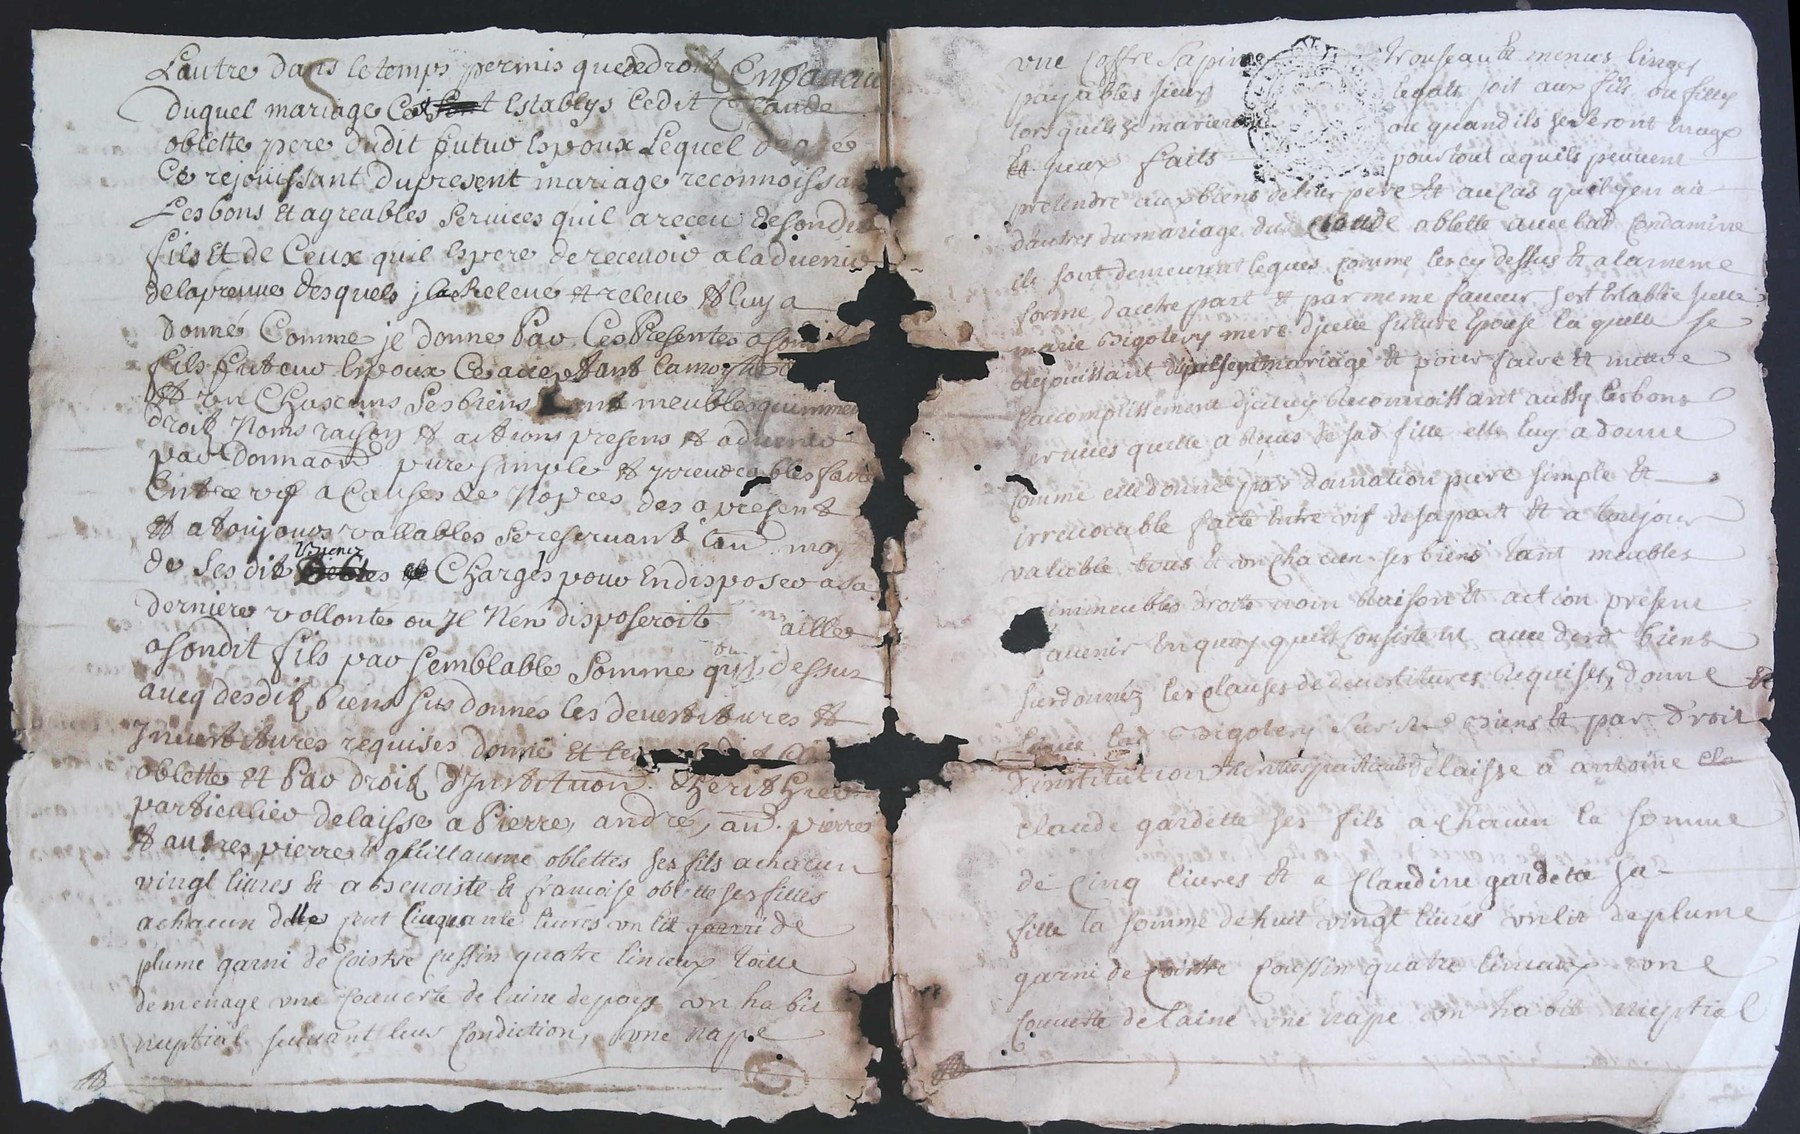 Lautre dans letemps permis quededroit En faveur
duquel mariage Cest Establys Ledit Claude
oblette pere dudit futur Espoux Lequel degré
Ce rejouissant dupresent mariage reconnoissa
Lesbons Et agreables Services quil areceu desondit
fils Et de Ceux quil Espere derecevoir aladvenir
delapreuve desquels il la Releve et releve et luy a
donné Comme je donne Par Ces Presentes ason
fils futeur Espoux tant lamoy
Et un Chascuns Sesbiens tant meubles quimmeu
droitz Noms raison et actions presens et advenir
par Donnaon pure simple et yrrevocables faite
Entre vif a Causes de Nopces des apresent
et atoujours vallables Se reservant
de Ses dit Biens Charges pour En disposer asa
derniere vollonté ou Il Nen disposeroit ailles
asondit fils par Semblable Somme dessus
aveq desdit biens sus donnés les devestitures et
Investitures requises donne et
oblette et Par droit d'Institution dherithier
particulier delaisse a Pierre, andré, pierre
et autres pierre & guillaume oblettes ses fils achacun
vingt livres et a benoiste & francoise oblette ses filles
achacun delle cent Cinquante livres un lit garni de
plume garni de Coistre Cussin quatre linceux toille
demenage une Couverte de laine de pays un habit
nuptial suivant leur Condiction, une nape
une Coffre Sapin trouseau & menus linges
payables jceux legats soit aux fils ou filles
lors quils se marieront ou quand ils se Seront en age
Et jceux faits pour tout cequils peuvent
pretendre aux biens de leur pere Et au Cas quil y en aie
dautres du mariage dud Claude oblette avec lad Condamine
ils sont demeurat legues Comme les cy dessus Et a la meme
forme d'autre part & par meme faveur sest Establie
marie Bigolery mere djcelle future Epouse laquelle se
Rejouissant du present mariage & pour faire Et
lacomplissement djceluy Reconnoissant aussy les bons
services quelle a Reçus de sad fille elle luy a donne
Comme elle donne par donnation pure simple Et
irrevocable faite Entre vif desapart Et a toujour
valable tous Et un chacun ses biens tant meubles
immeubles droits nom Raison Et action presens
avenir En quoy quils Consistent avec desd biens
surdonnéz les clauses de devestitures Requises, donne Et
Bigolery sur biens Et par droit
d'institution delaisse à antoine
claude gardette ses fils a chacun la somme
de Cinq livres Et a Claudine gardette sa
fille la somme de huit vingt livres un lit de plume
garni de Coistre Coussin quatre linceux une
Couverte de laine une nape un habit nuptial